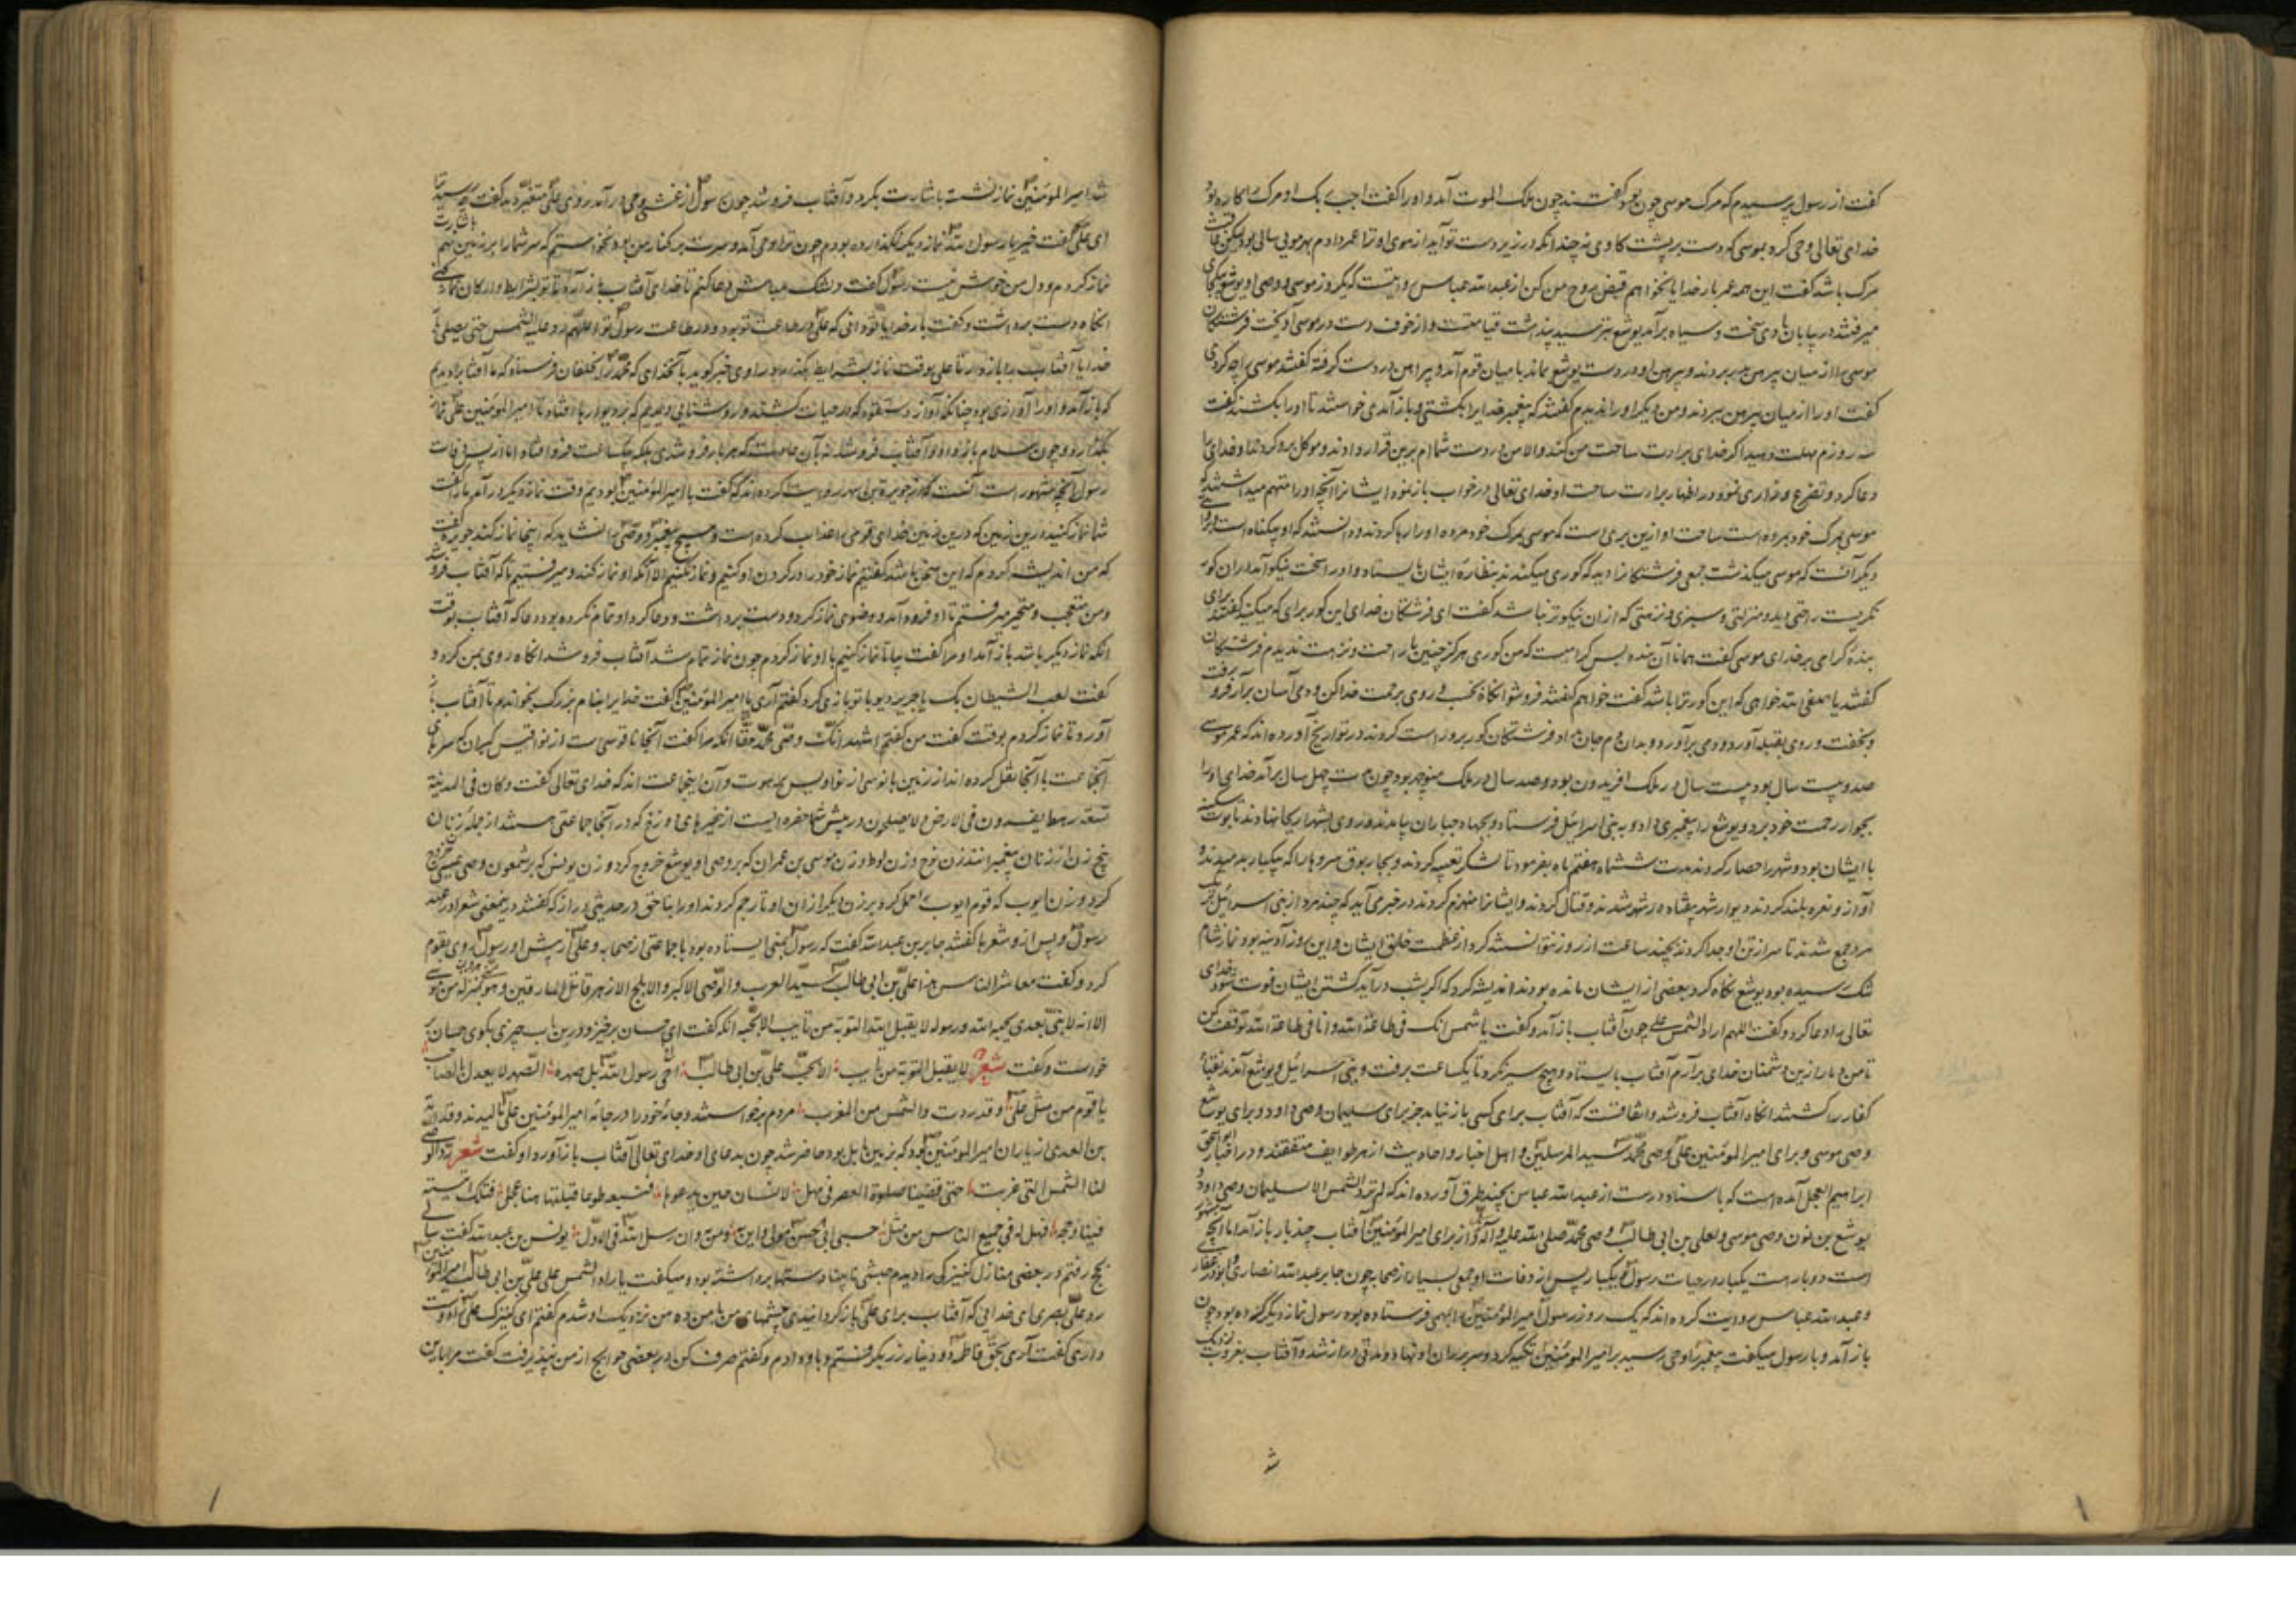 گفت از رسول پرسیدم که مرگ موسی چون بود گفتند چون ملک الموت آمد و او را گفت اجب ربک او مرگ را کاره بود
خدای تعالی وحی کرد بموسی که دست بر پشت گاوی نه چندانکه در زیر دست تو آید از موی او ترا عمر دادم بهر مویی سالی بود لیکن عاقبت
مرگ باشد گفت این همه عمر بار خدایا نخواهم قبض روح من کن از عبدالله عباس روایتست که یکروز موسی و وصی او یوشع بیکجا
میرفتند در بیابان بادی سخت و سیاه برآمد یوشع بترسید پنداشت قیامتست و از خوف دست در موسی آویخت فرشتگان
موسی را از میان پیرهن بدر بردند و پیرهن او در دست یوشع بماند با میان قوم آمد و پیراهن در دست گرفته گفتند موسی را چه کردی
گفت او را از میان پیرهن ببردند و من دیگر او را ندیدم گفتند که پیغمبر خدایرا بکشتی و باز آمدی خواستند تا او را بکشند گفت
سه روزم مهلت دهید اگر خدای براءت ساحت من کند والا من در دست شماام برین قرار دادند و موکل برو کردند او خدای را
دعا کرد و تضرع و زاری نمود در اظهار براءت ساحت او خدای تعالی در خواب باز نمود ایشانرا آنچه او را متهم میداشتند که
موسی بمرگ خود بمرده است ساحت او ازین بری است که موسی بمرگ خود مرده او را رها کردند و دانستند که او بیگناه است
دیگر آنست که موسی میگذشت جمعی فرشتگانرا دید که گوری میکندند بنظاره ایشان بایستاد و او را سخت نیکو آمد در آن گور
نگریست راحتی دید و منزلتی و سبزی و نزهتی که از آن نیکوتر نباشد گفت ای فرشتگان خدای این گور برای که میکنید گفتند برای
بنده گرامی بر خدای موسی گفت همانا آن بنده بس گرامیست که من گوری هرگز چنین با راحت و نزهت ندیدم فرشتگان
گفتند یا صفی الله خواهی که این گور ترا باشد گفت خواهم گفتند فرو شو آنگاه بخسب و روی برحمت خدا کن و دمی آسان برآر فرو رفت
و بخفت و روی بقبله آورد و دمی برآورد و بدان دم جان داد فرشتگان گور برو راست کردند در تواریخ آورده اند که عمر موسی
صد و بیست سال بود بیست سال در ملک افریدون بود و صد سال در ملک منوچهر بود چون مدت چهل سال برآمد خدای او را
بجوار رحمت خود برد و یوشع را پیغمبری داد و به بنی اسرائیل فرستاد و بجهاد جباران بیامدند و روی بشهر اریحا نهادند تابوت سکینه
با ایشان بود و شهر را حصار کردند مدت ششماه هفتم ماه بفرمود تا لشکر تعبیه کردند و بیکبار بوق و سروها را که بیکبار بدمیدند و
آواز و نعره بلند کردند دیوار شهر بیفتاد در شهر شدند و قتال کردند و ایشانرا منهزم کردند در خبری آید که چند مرد از بنی اسرائیل بر
مرد جمع شدند تا سر از تن او جدا کردند بچند ساعت از روز نتوانستند کرد از عظمت خلق ایشان و این روز آدینه بود و نماز شام
تنگ رسیده بود یوشع نگاه کرد بعضی از ایشان مانده بودند اندیشه کرد که اگر شب درآید کشتن ایشان فوت شود خدای
تعالی را دعا کرد و گفت اللهم اردد الشمس علی چون آفتاب باز آمد و گفت یا شمس انک فی طاعة الله و انا فی طاعة الله توقف کن
تا من دمار ازین دشمنان خدای برآرم آفتاب بایستاد و هیچ سیر نکرد تا یکساعت برفت و بنی اسرائیل و یوشع آمدند بقیه
کفار را کشتند آنگاه آفتاب فرو شد و اتفاقست که آفتاب برای کسی باز نیامد جز برای سلیمان وصی داود و برای یوشع
وصی موسی و برای امیرالمؤمنین علی وصی محمد سید المرسلین و اهل اخبار و احادیث از هر طوایف متفقند و در اخبار
ابراهیم العجل آمده است که باسناد درست از عبدالله عباس بچند طرق آورده اند که لم ترد الشمس الا لسلیمان وصی داود و
یوشع بن نون وصی موسی و لعلی بن ابی طالب وصی محمد صلی الله علیه و آله و از برای امیرالمؤمنین آفتاب چند بار باز آمد اما آنچه مشهور
است دو بار است یکبار در حیات رسول و یکبار پس از وفات او جمعی بسیار از صحابه چون جابر عبدالله انصاری و ابوذر غفاری
و عبدالله عباس روایت کرده اند که یک روز رسول امیرالمؤمنین را بمهمی فرستاده بود رسول نماز دیگر کرده بود چون
باز آمد و با رسول میگفت پیغمبر را وحی رسید بر امیرالمؤمنین تکیه کرد و سر بر ران او نهاد و مدتی دراز شد و آفتاب بغروب نزدیک
شد
شد امیرالمؤمنین نماز نشسته باشارت بکرد و آفتاب فرو شد چون رسول از غشی وحی درآمد روی علی متغیر دید گفت چه رسید ترا
ای علی گفت خیر یا رسول الله نماز دیگر نگذارده بودم چون ترا وحی آمد و سرت بر کنار من بود نخواستم که سر شما را بر زمین نهم باشارت
نماز کردم و دل من خوش نیست رسول گفت دلتنگ مباش دعا کنم تا خدای آفتاب باز آرد تا تو بشرایط و ارکان نماز کنی
آنگاه دست برداشت و گفت بار خدایا تو دانی که علی در طاعت تو بود و در طاعت رسول تو اللهم رد علیه الشمس حتی یصلی
خدایا آفتاب را باز دار تا علی بوقت نماز بشرایط بگذارد راوی خبر گوید بآنخدای که محمد را بخلقان فرستاد که ما آفتاب را دیدیم
که باز آمد و او را آوازی بود چنانکه آواز دستقود که در حیات کشند و روشنایی دیدیم که بر دیوارها افتاد تا امیرالمؤمنین علی نماز
بگذارد و چون سلام باز داد و آفتاب فرو شد نه بآن عادت که هر بار فرو شدی بلکه بیکساعت فرو افتاد اما از پس وفات
رسول آنچه مشهور است آنست که از جویریة بن مسهر روایت کرده اند که گفت با امیرالمؤمنین بودیم وقت نماز دیگر درآمد ما را گفت
شما نماز کنید درین زمین که درین زمین خدای قومی را عذاب کرده است و هیچ پیغمبر و وصی را نشاید که اینجا نماز کند جویریه گفت
که من اندیشه کردم که این صحابا شد گفتم نماز خود را در گردن او کنیم و نماز نکنیم الا آنگه او نماز کند و میرفتیم تا که آفتاب فرو شد
و من متعجب و متحیر میرفتم تا او فرود آمد و وضوی نماز کرد و دست برداشت و دعا کرد او تمام نکرده بود دعا که آفتاب بوقت
آنکه نماز دیگر باشد باز آمد او مرا گفت بیا تا نماز کنیم با او نماز کردم چون نماز تمام شد آفتاب فرو شد آنگاه روی بمن کرد و
گفت لعب الشیطان بک یا جویریه دیو با تو بازی کرد گفتم آری یا امیرالمؤمنین گفت خدایرا بنام بزرگ بخواندم تا آفتاب باز
آورد تا نماز کردم بوقت گفت من گفتم اشهد انک وصی محمد حقا آنگه مرا گفت آنجا ناقوسی است از نواقیس گبران که سرهای
آنجماعت با آنجا نقل کرده اند از زمین بانوسی از نواویس برهوت و آن اینجماعت اند که خدای تعالی گفت و کان فی المدینة
تسعة رهط یفسدون فی الارض و لا یصلحون و در پیش شما حفره ایست از حفره های دوزخ که در آنجا جماعتی هستند از جمله زنان
پنج زن از زنان پیغمبرانند زن نوح و زن لوط و زن موسی بن عمران که بر وصی او یوشع خروج کرد و زن یونس که بر شمعون وصی عیسی خروج
کرد و زن ایوب که قوم ایوب را حمل کرد بر زن دیگر از آن او تا رجم کردند او را بناحق در حدیثی دراز که گفتند درینمعنی شعرا در عهد
رسول و پس ازو شعرها گفتند جابر بن عبدالله گفت که رسول بمنی ایستاده بود با جماعتی از صحابه و علی از پیش او رسول روی بقوم
کرد و گفت معاشر الناس هذا علی بن ابی طالب سید العرب و الوصی الاکبر و الابلج الازهر قاتل المارقین و هو بمنزلة هرون من موسی
الا انه لا نبی بعدی یحبه الله و رسوله لا یقبل الله التوبة من تایب الا بحبه آنگه گفت ای حسان برخیز و درین باب چیزی بگوی حسان بر
خواست و گفت شعر لا یقبل التوبة من تایب الا بحب علی بن ابی طالب اخی رسول الله بل صهره الصهر لا یعدل بالصاحب
یا قوم من مثل علی و قد ردت و الشمس من المغرب مردم برخواستند و جامه خود را در جامه امیرالمؤمنین علی مالیدند و قدامة
بن العبدی از یاران امیرالمؤمنین بود که بزمین بابل بود حاضر شد چون بدعای او خدای تعالی آفتاب باز آورد او گفت شعر رد الوصی
لنا الشمس التی غربت حتی قضینا صلوة العصر فی مهل لانسان حین یدعوه فتتبعه طوعا قبلتها هنا عجل فتلک آیته
فینا و حجه فهل له فی جمیع الناس من مثل حسبی ابی الحسن مولی و این و من وان رسل الله فی الاول یونس بن عبدالله گفت سالی
بحج رفتم در بعضی منازل کنیزکی را دیدم حبشی نابینا دستها برداشته بود و میگفت یا راد الشمس علی علی بن ابی طالب امیرالمؤمنین
رد علی بصری ای خدایی که آفتاب برای علی باز گردانیدی چشمهای من با من ده من نزدیک او شدم گفتم ای کنیزک علی را دوست
داری گفت آری بحق فاطمه دو دینار زر برگرفتم و باو دادم و گفتم صرف کن در بعضی حوایج از من نپذیرفت گفت مرا باین